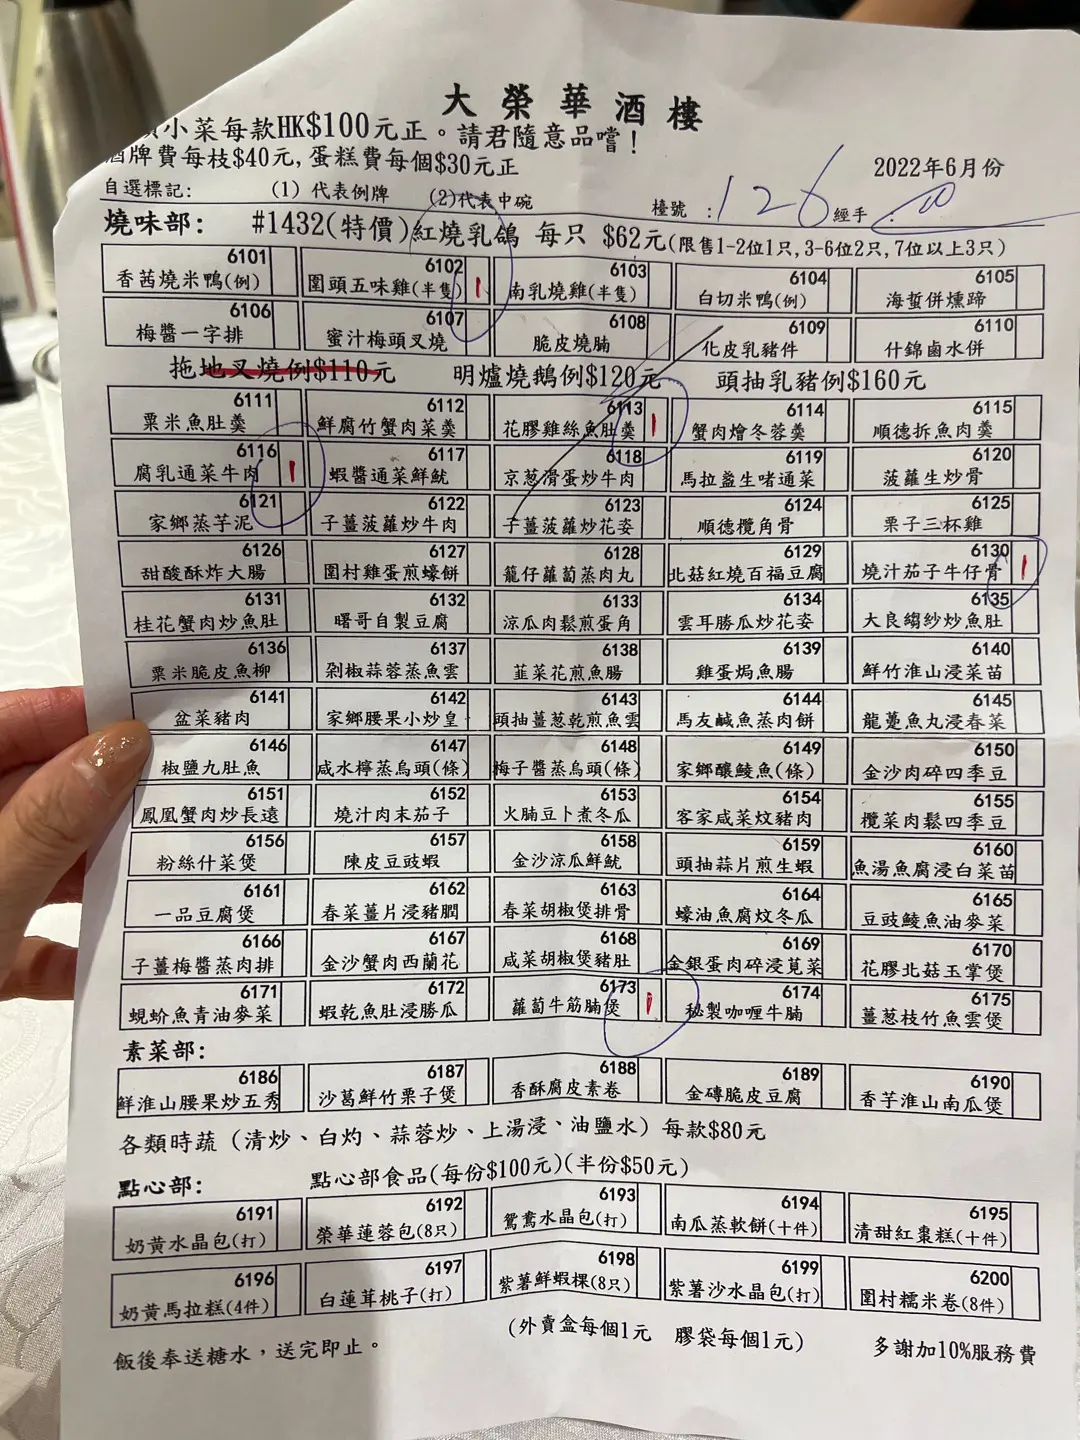 大榮華酒樓
小菜每款HK$100元正。請君隨意品嚐！
酒牌費每枝$40元,蛋糕費每個$30元正
2022年6月份
自選標記: (1) 代表例牌 (2)代表中碗 檯號 : 126 經手 :
燒味部: #1432(特價)紅燒乳鴿 每只 $62元(限售1-2位1只,3-6位2只,7位以上3只)
6101 6102 6103 6104 6105
香茜燒米鴨(例) 圍頭五味雞(半隻) 1 南乳燒雞(半隻) 白切米鴨(例) 海蜇併燻蹄
6106 6107 6108 6109 6110
梅醬一字排 蜜汁梅頭叉燒 脆皮燒腩 化皮乳豬件 什錦鹵水併
拖地叉燒例$110元 明爐燒鵝例$120元 頭抽乳豬例$160元
6111 6112 6113 6114 6115
粟米魚肚羹 鮮腐竹蟹肉菜羹 花膠雞絲魚肚羹 1 蟹肉燴冬蓉羹 順德拆魚肉羹
6116 6117 6118 6119 6120
腐乳通菜牛肉 1 蝦醬通菜鮮魷 京葱滑蛋炒牛肉 馬拉盞生啫通菜 菠蘿生炒骨
6121 6122 6123 6124 6125
家鄉蒸芋泥 子薑菠蘿炒牛肉 子薑菠蘿炒花姿 順德欖角骨 栗子三杯雞
6126 6127 6128 6129 6130
甜酸酥炸大腸 圍村雞蛋煎蠔餅 籠仔蘿蔔蒸肉丸 北菇紅燒百福豆腐 燒汁茄子牛仔骨 1
6131 6132 6133 6134 6135
桂花蟹肉炒魚肚 曙哥自製豆腐 涼瓜肉鬆煎蛋角 雲耳勝瓜炒花姿 大良縐紗炒魚肚
6136 6137 6138 6139 6140
粟米脆皮魚柳 剁椒蒜蓉蒸魚雲 韮菜花煎魚腸 雞蛋焗魚腸 鮮竹淮山浸菜苗
6141 6142 6143 6144 6145
盆菜豬肉 家鄉腰果小炒皇 頭抽薑葱乾煎魚雲 馬友鹹魚蒸肉餅 龍躉魚丸浸春菜
6146 6147 6148 6149 6150
椒鹽九肚魚 咸水檸蒸烏頭(條) 梅子醬蒸烏頭(條) 家鄉釀鯪魚(條) 金沙肉碎四季豆
6151 6152 6153 6154 6155
鳳凰蟹肉炒長遠 燒汁肉末茄子 火腩豆卜煮冬瓜 客家咸菜炆豬肉 欖菜肉鬆四季豆
6156 6157 6158 6159 6160
粉絲什菜煲 陳皮豆豉蝦 金沙涼瓜鮮魷 頭抽蒜片煎生蝦 魚湯魚腐浸白菜苗
6161 6162 6163 6164 6165
一品豆腐煲 春菜薑片浸豬膶 春菜胡椒煲排骨 蠔油魚腐炆冬瓜 豆豉鯪魚油麥菜
6166 6167 6168 6169 6170
子薑梅醬蒸肉排 金沙蟹肉西蘭花 咸菜胡椒煲豬肚 金銀蛋肉碎浸莧菜 花膠北菇玉掌煲
6171 6172 6173 6174 6175
蜆蚧魚青油麥菜 蝦乾魚肚浸勝瓜 蘿蔔牛筋腩煲 1 秘製咖喱牛腩 薑葱枝竹魚雲煲
素菜部:
6186 6187 6188 6189 6190
鮮淮山腰果炒五秀 沙葛鮮竹栗子煲 香酥腐皮素卷 金磚脆皮豆腐 香芋淮山南瓜煲
各類時蔬 (清炒、白灼、蒜蓉炒、上湯浸、油鹽水) 每款$80元
點心部: 點心部食品(每份$100元)(半份$50元)
6191 6192 6193 6194 6195
奶黃水晶包(打) 榮華蓮蓉包(8只) 鴛鴦水晶包(打) 南瓜蒸軟餅(十件) 清甜紅棗糕(十件)
6196 6197 6198 6199 6200
奶黃馬拉糕(4件) 白蓮茸桃子(打) 紫薯鮮蝦粿(8只) 紫薯沙水晶包(打) 圍村糯米卷(8件)
(外賣盒每個1元 膠袋每個1元)
飯後奉送糖水，送完即止。 多謝加10%服務費